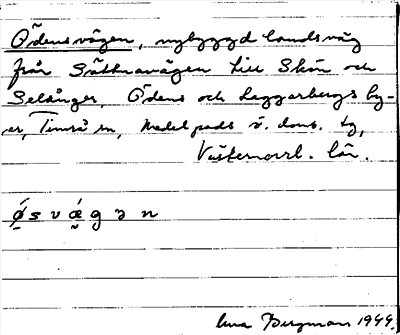 Ödensvägen, nybyggd landsväg
från Sättnavägen till Skön och
Selånger, Ödens och Laggarbergs by-
ar, Timrå sn, Medelpads v. doms. tg,
Västernorrl. län.
ǿ s v ǽ g ə n
Bergman 1944.